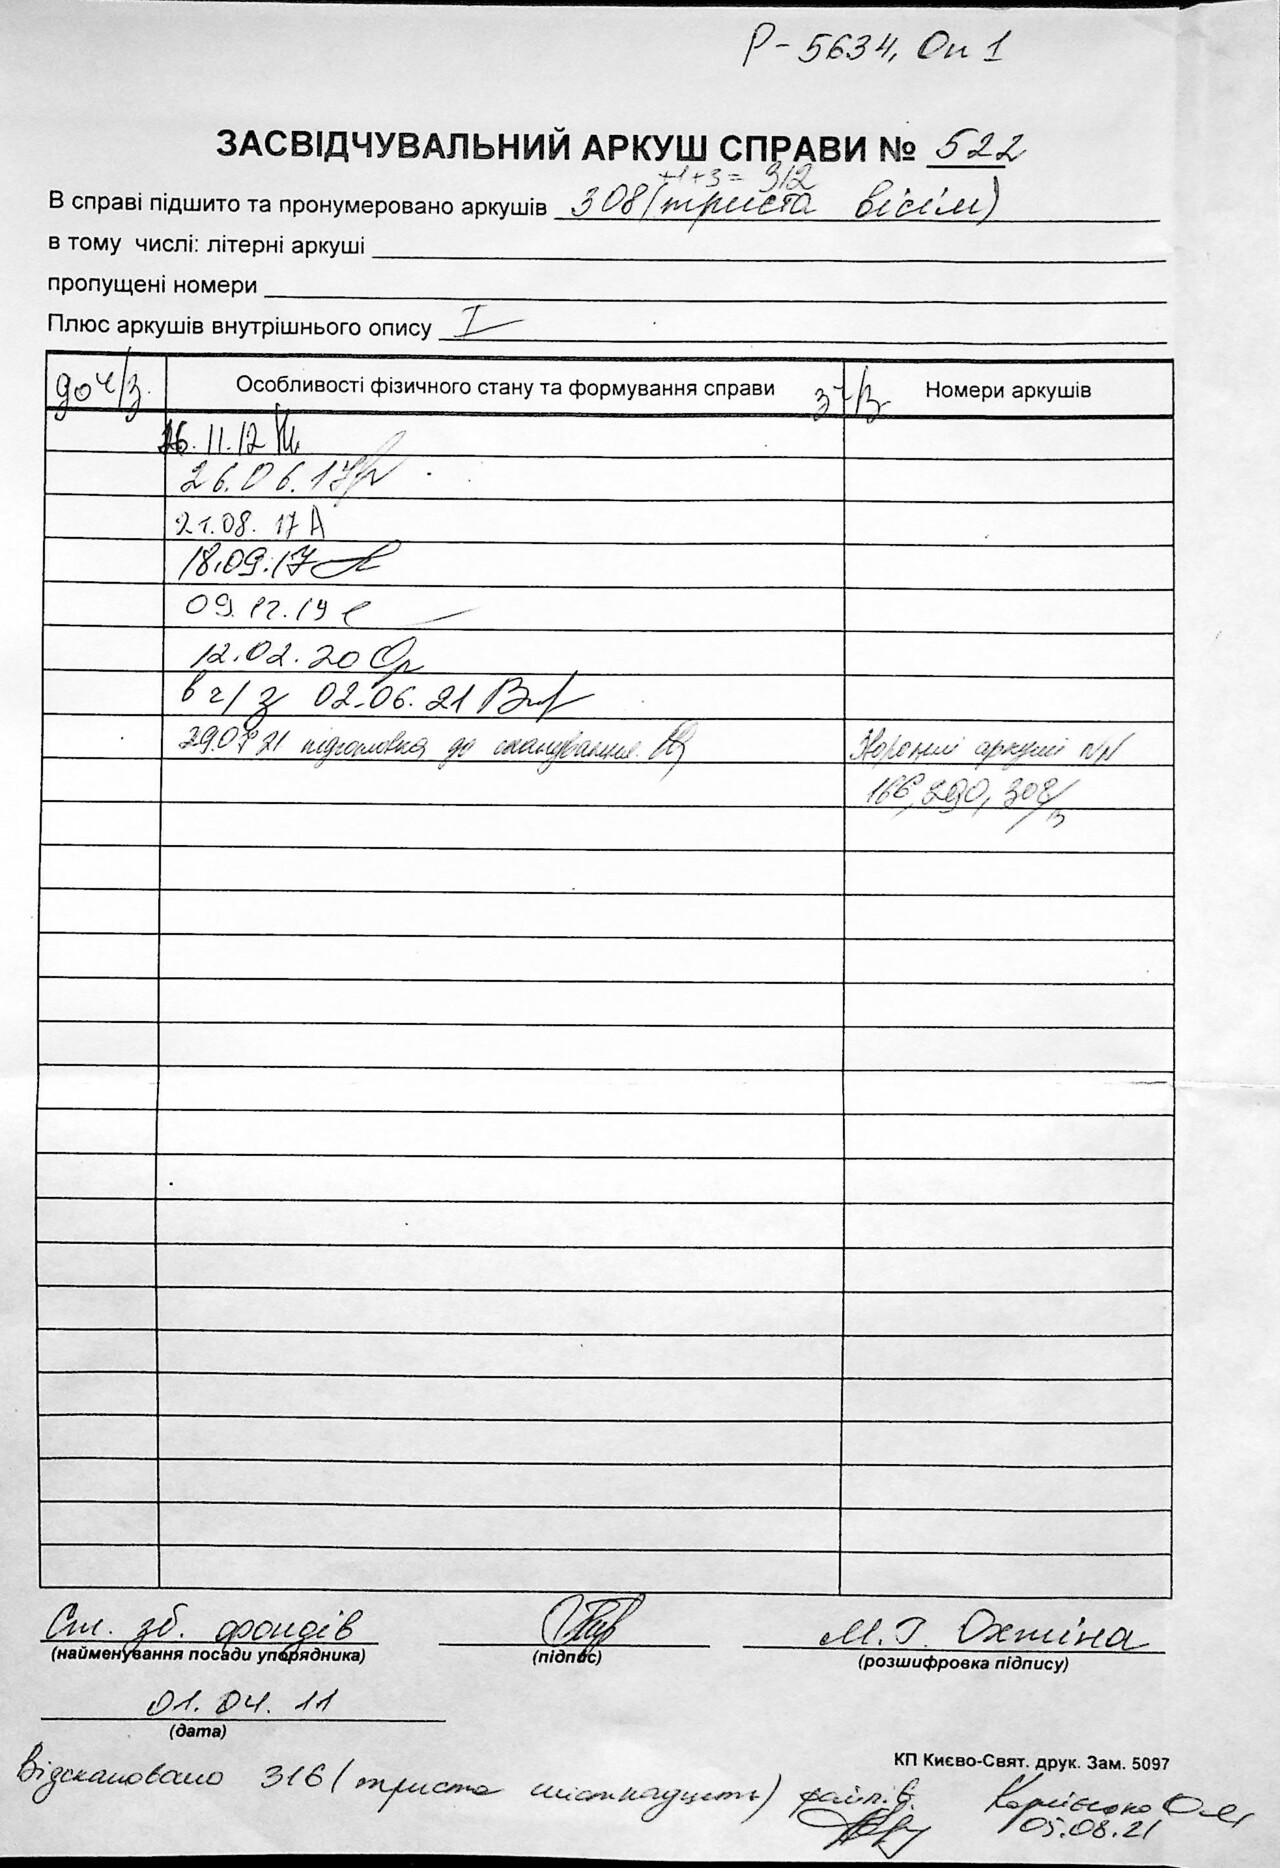 Р-5634, Оп 1
ЗАСВІДЧУВАЛЬНИЙ АРКУШ СПРАВИ № 522
+1+3= 312
В справі підшито та пронумеровано аркушів 308 (триста вісім)
в тому числі: літерні аркуші
пропущені номери
Плюс аркушів внутрішнього опису I
до ч/з. Особливості фізичного стану та формування справи з ч/з Номери аркушів
26.11.12
26.06.17
21.08.17 А
18.09.17
09.12.19
12.02.20
в ч/з 02.06.21
29.07.21 підготовка до сканування аркуші NN
166, 290, 308/
Ст. зб. фондів М.Г. Охтіна
(найменування посади упорядника) (підпис) (розшифровка підпису)
01.04.11
(дата)
КП Києво-Свят. друк. Зам. 5097
Відскановано 316 (триста шістнадцять) файлів
05.08.21